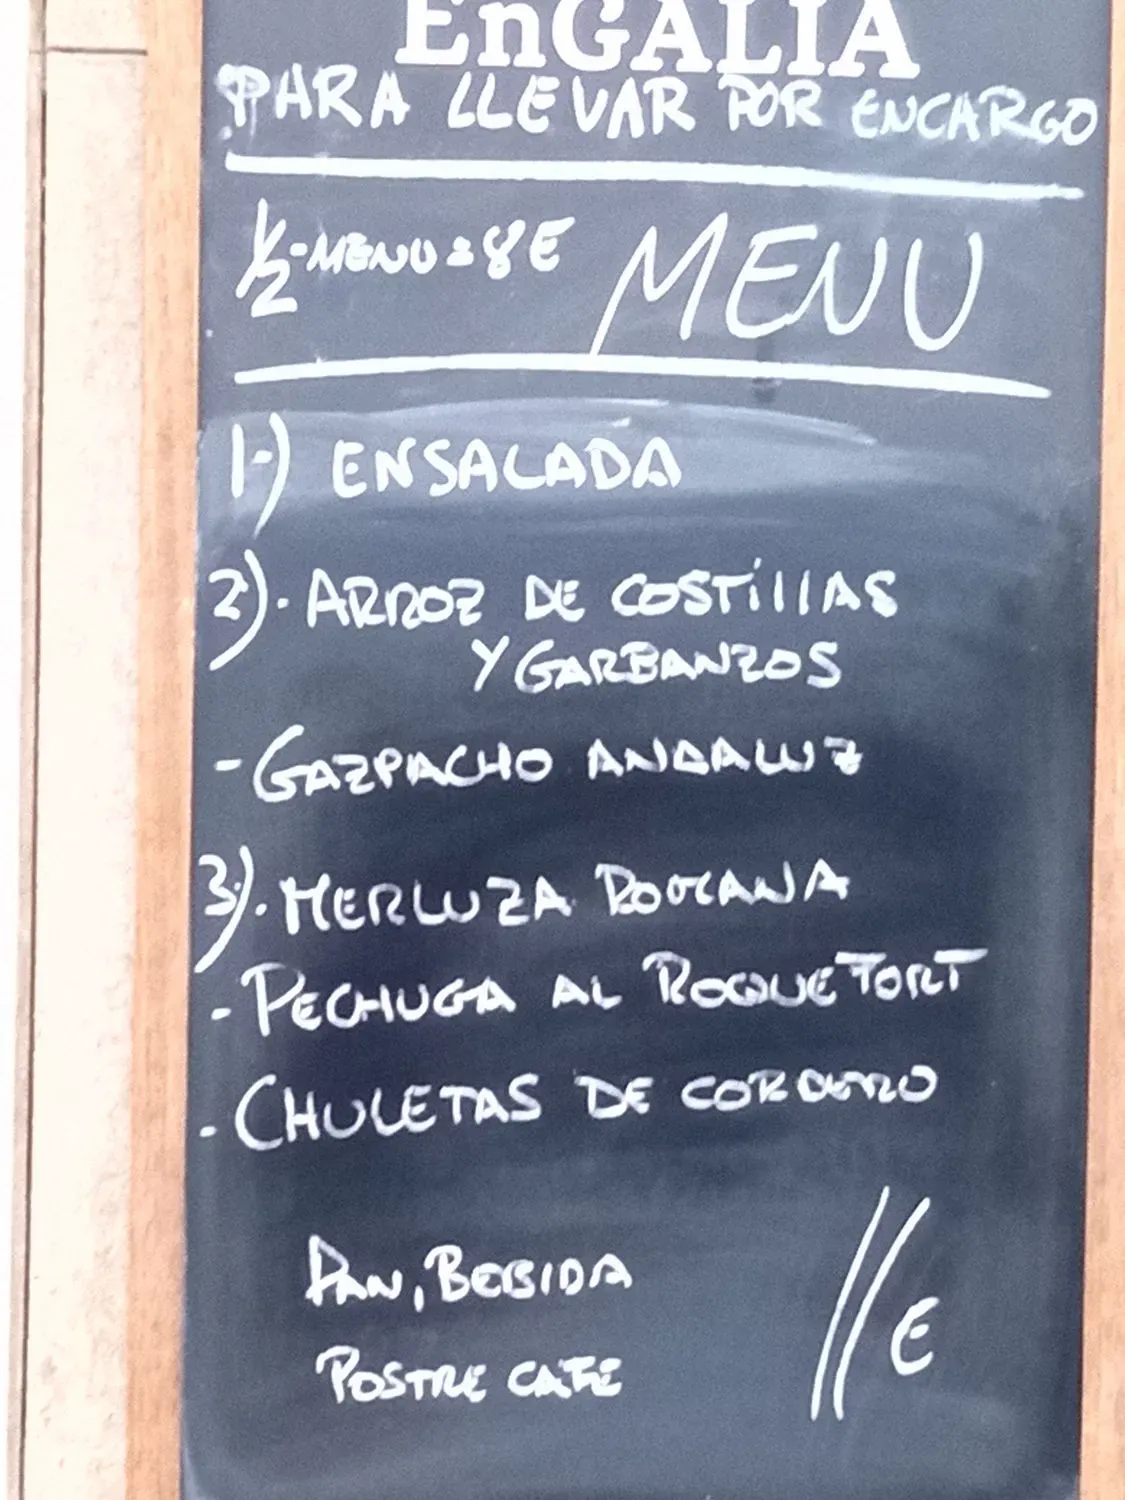 EnGALIA
PARA LLEVAR POR ENCARGO
1/2-MENU=8E MENU
1-) ENSALADA
2)- ARROZ DE COSTILLAS
Y GARBANZOS
- GAZPACHO ANDALUZ
3)- MERLUZA ROMANA
- PECHUGA AL ROQUEFORT
- CHULETAS DE CORDERO
PAN, BEBIDA 11E
POSTRE CAFE